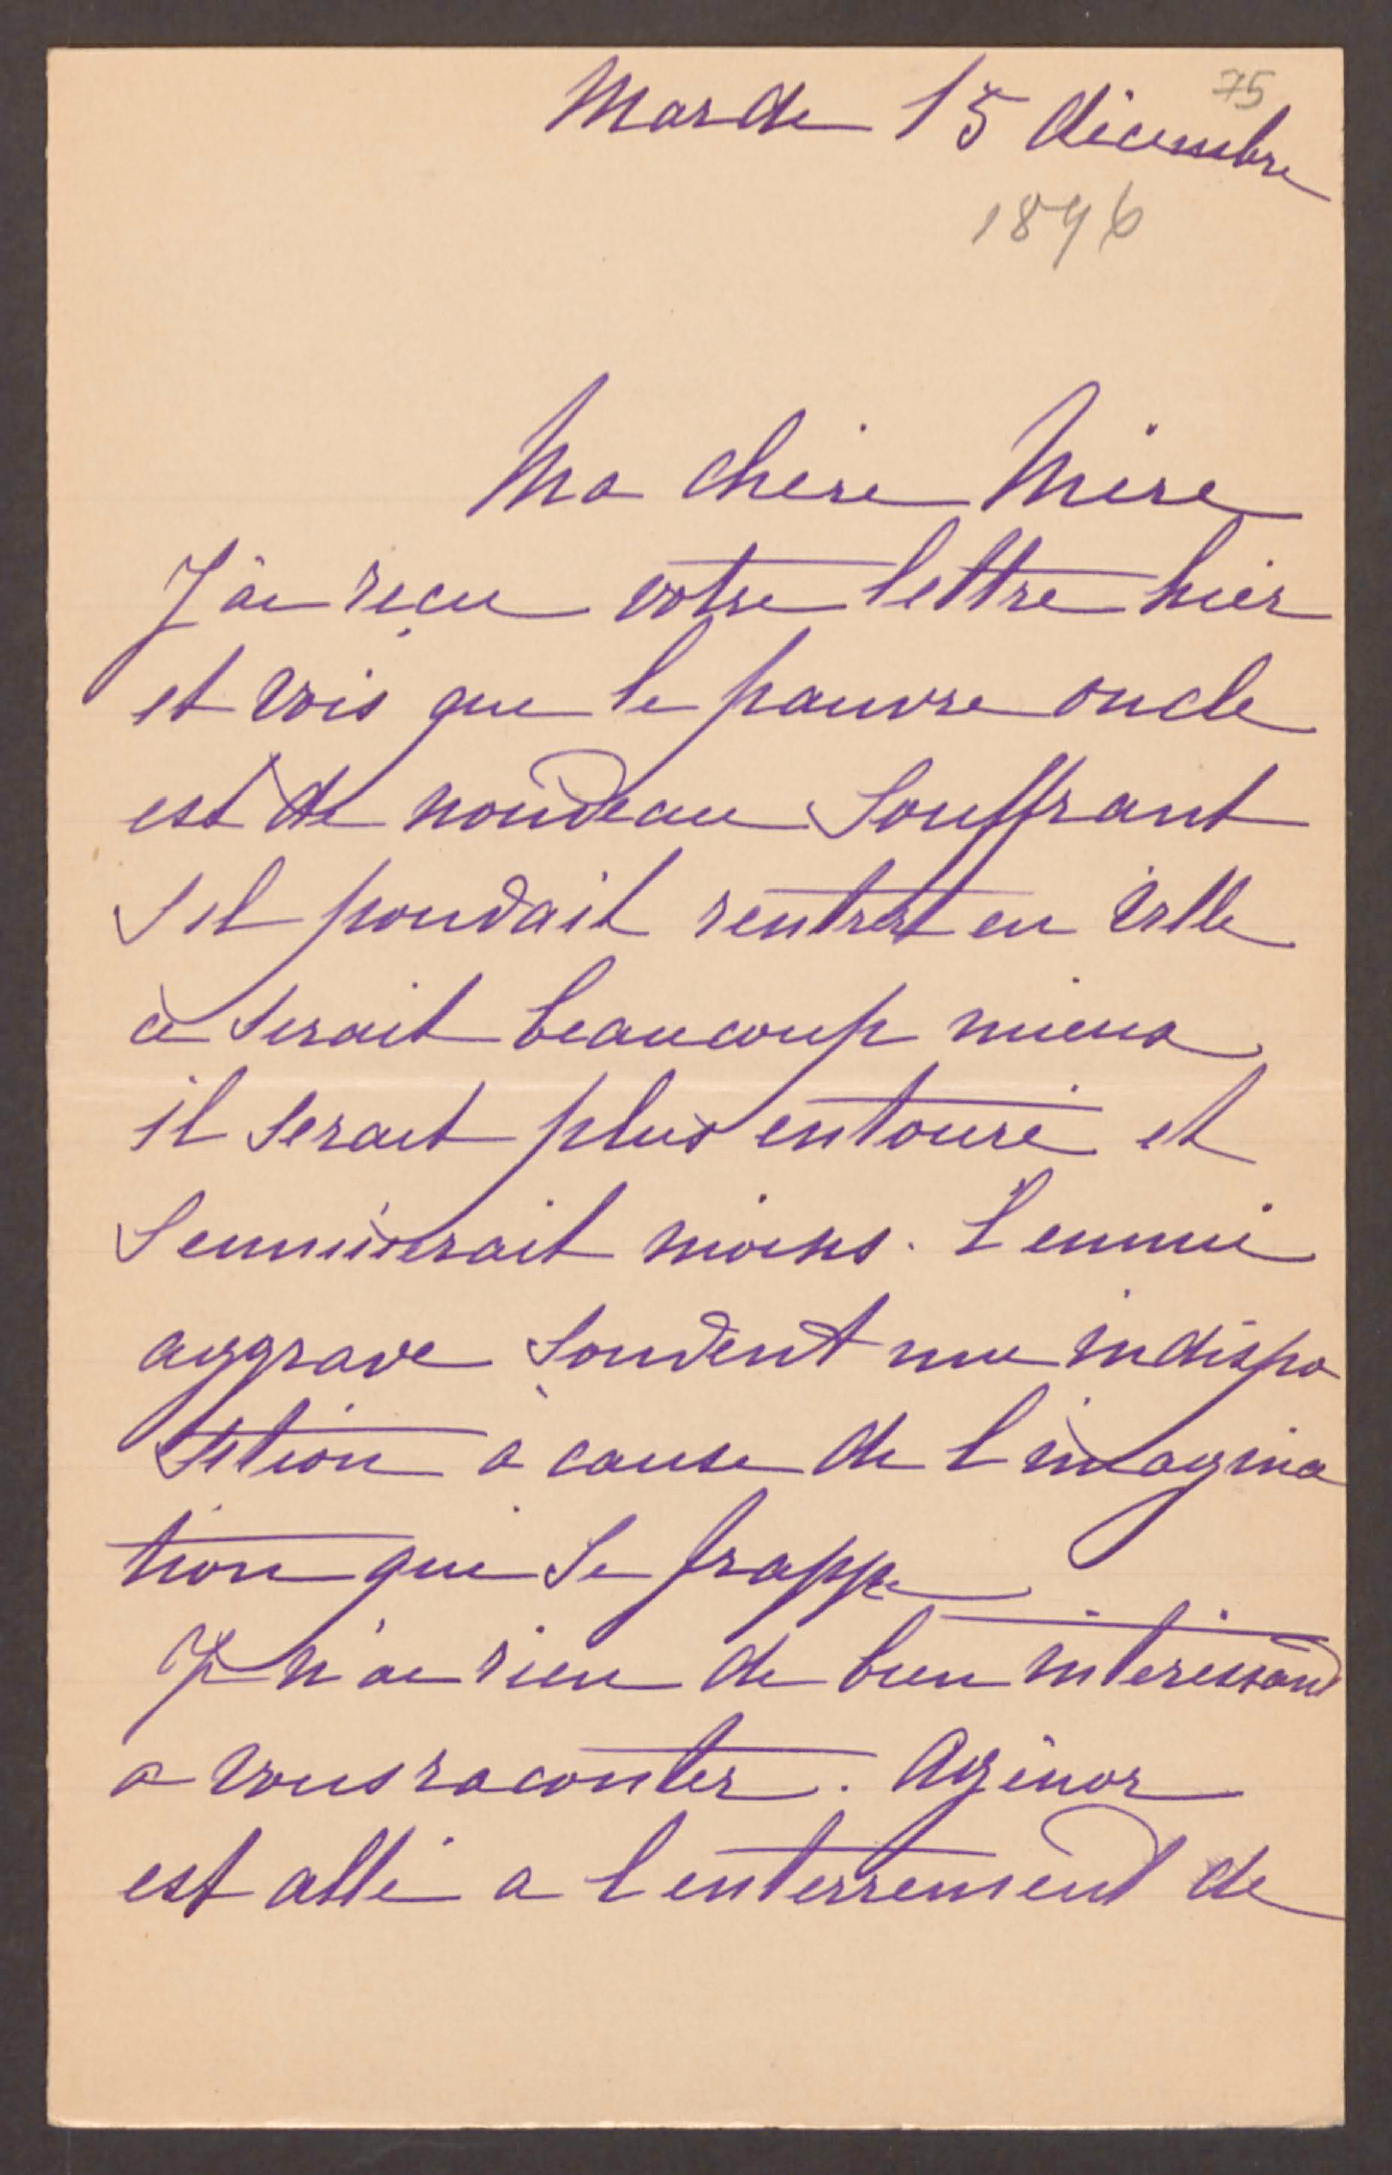 75
Mardi 15 décembre
1896
Ma chère Mère
J'ai reçu votre lettre hier
et vois que le pauvre oncle
est de nouveau souffrant
s'il pouvait rentrer en ville
ce serait beaucoup mieux
il serait plus entouré et
s'ennuierait moins. L'ennui
aggrave souvent une indispo
sition à cause de l'imagina
tion qui se frappe
Je n'ai rien de bien intéressant
a vous raconter. Agénor
est allé a l'enterrement de